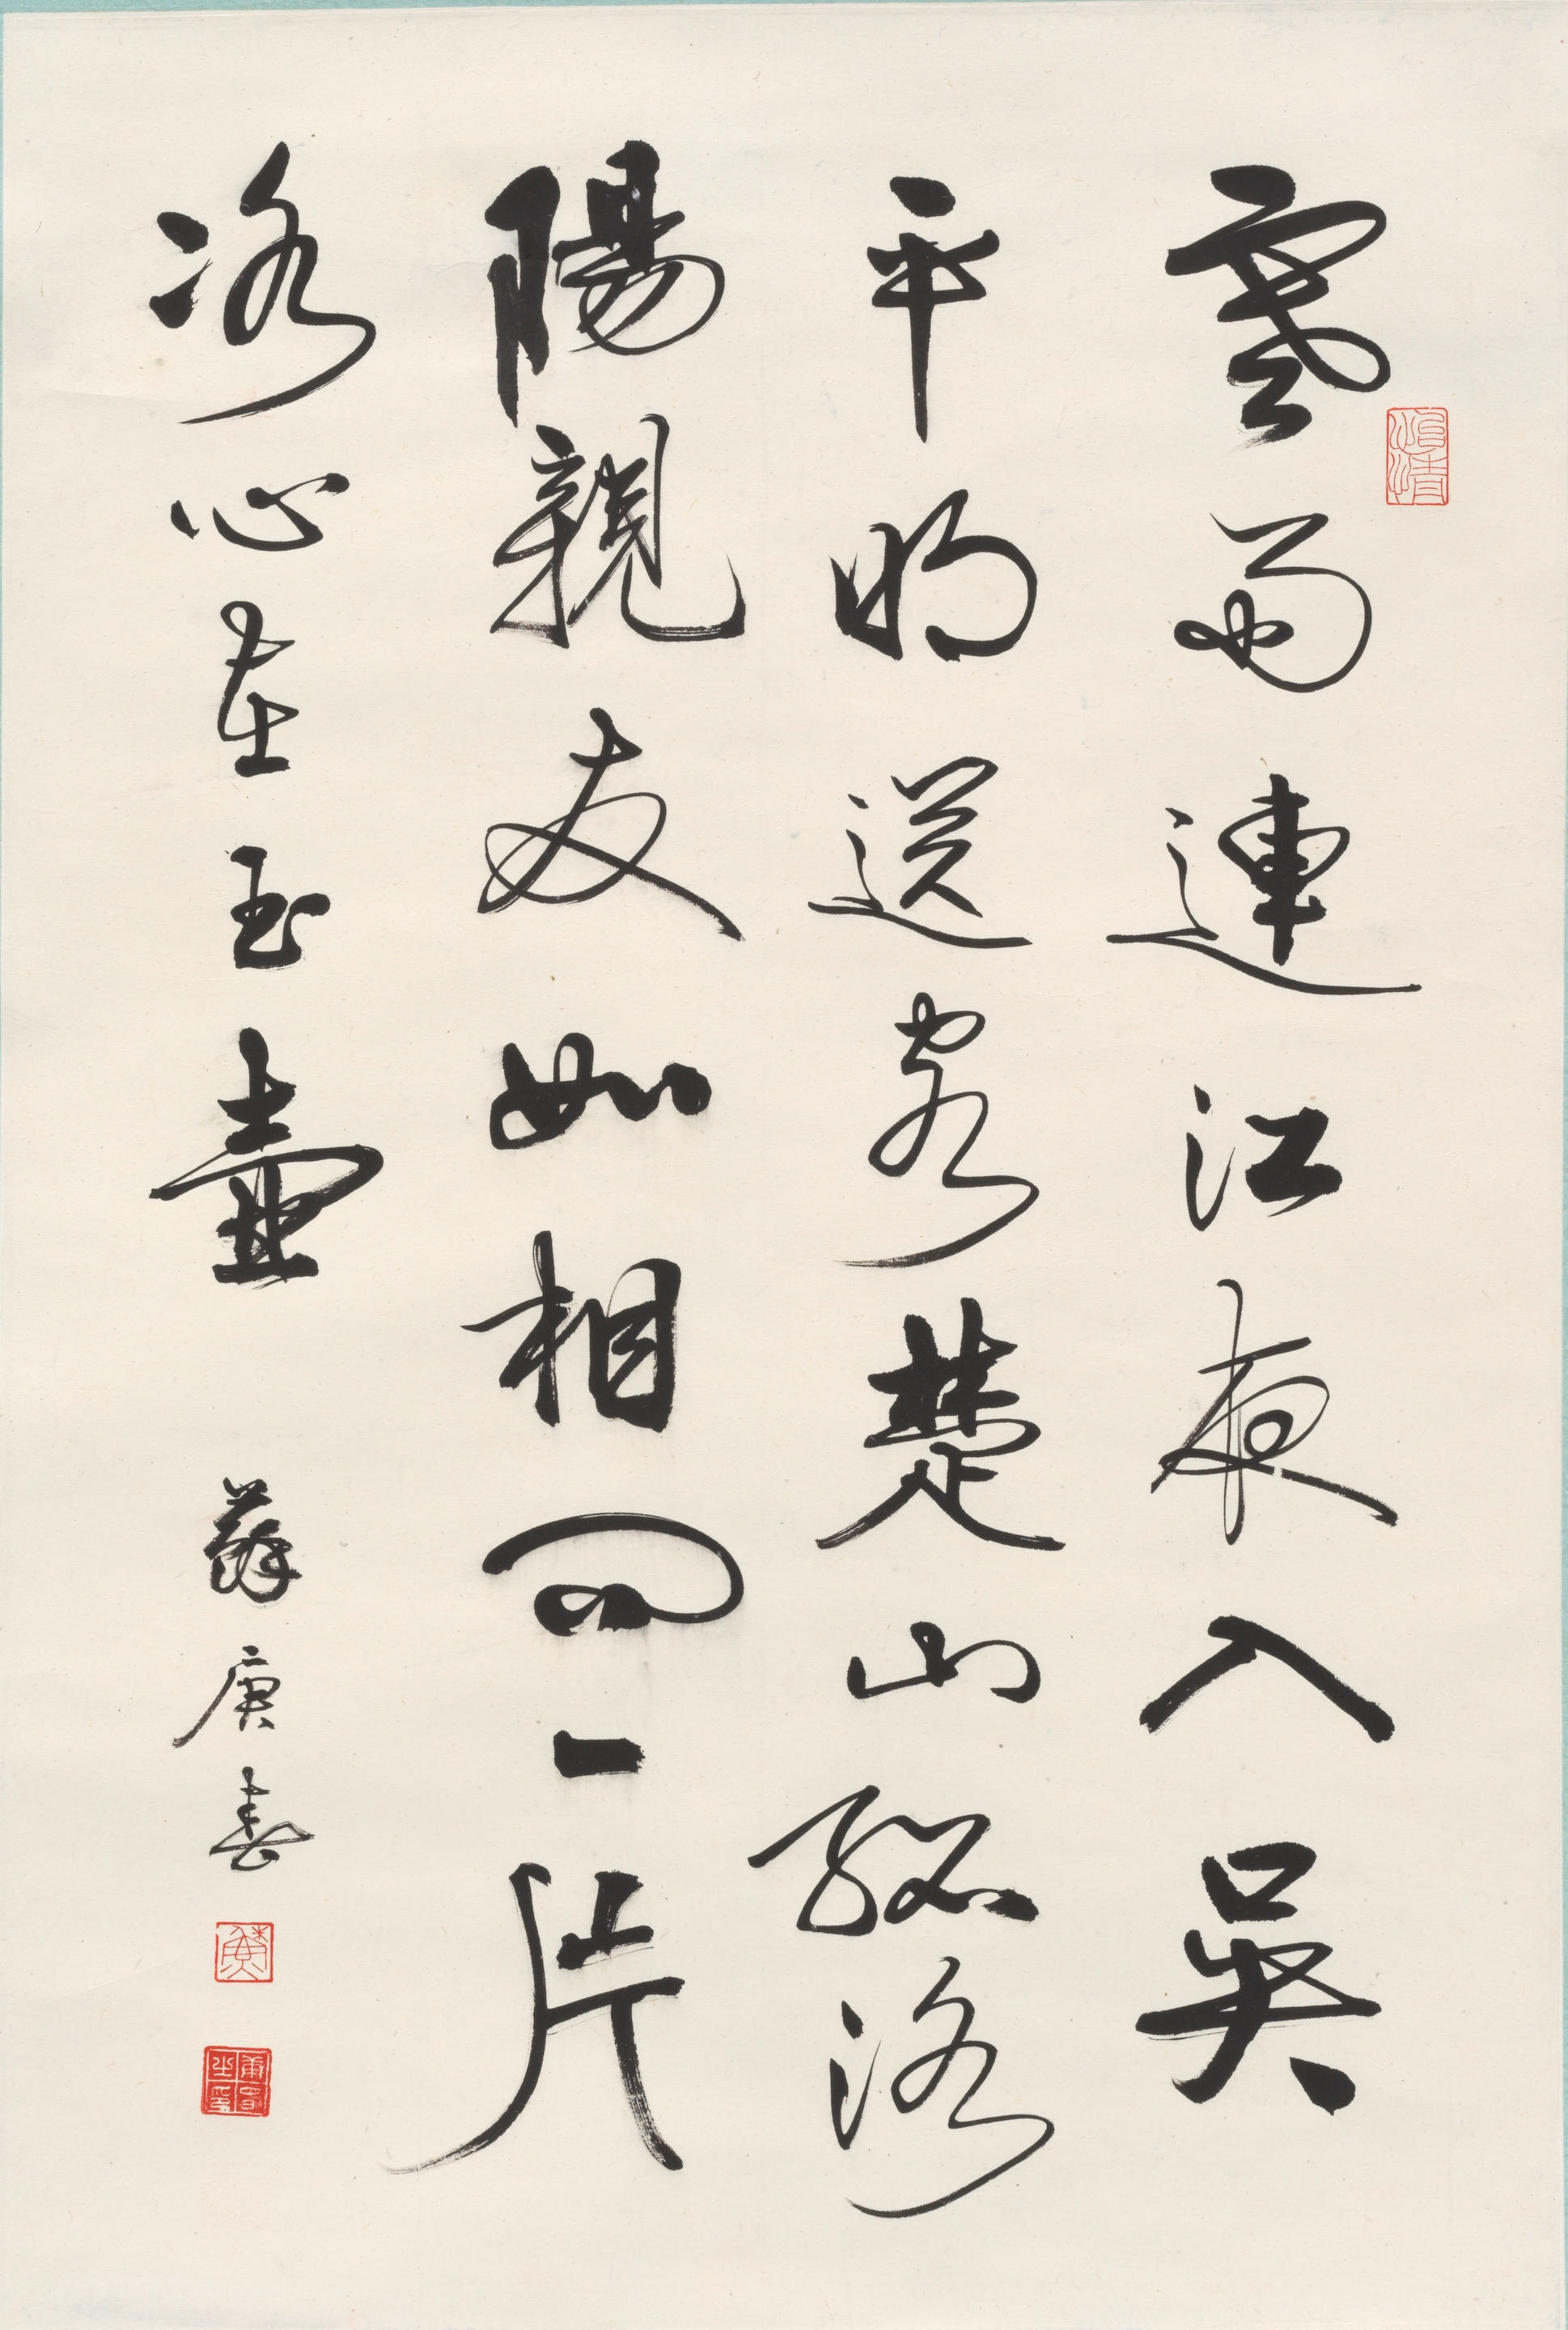 寒雨連江夜入吳
平明送客楚山孤洛
陽親友如相問一片
冰心在玉壺 蘇庚春